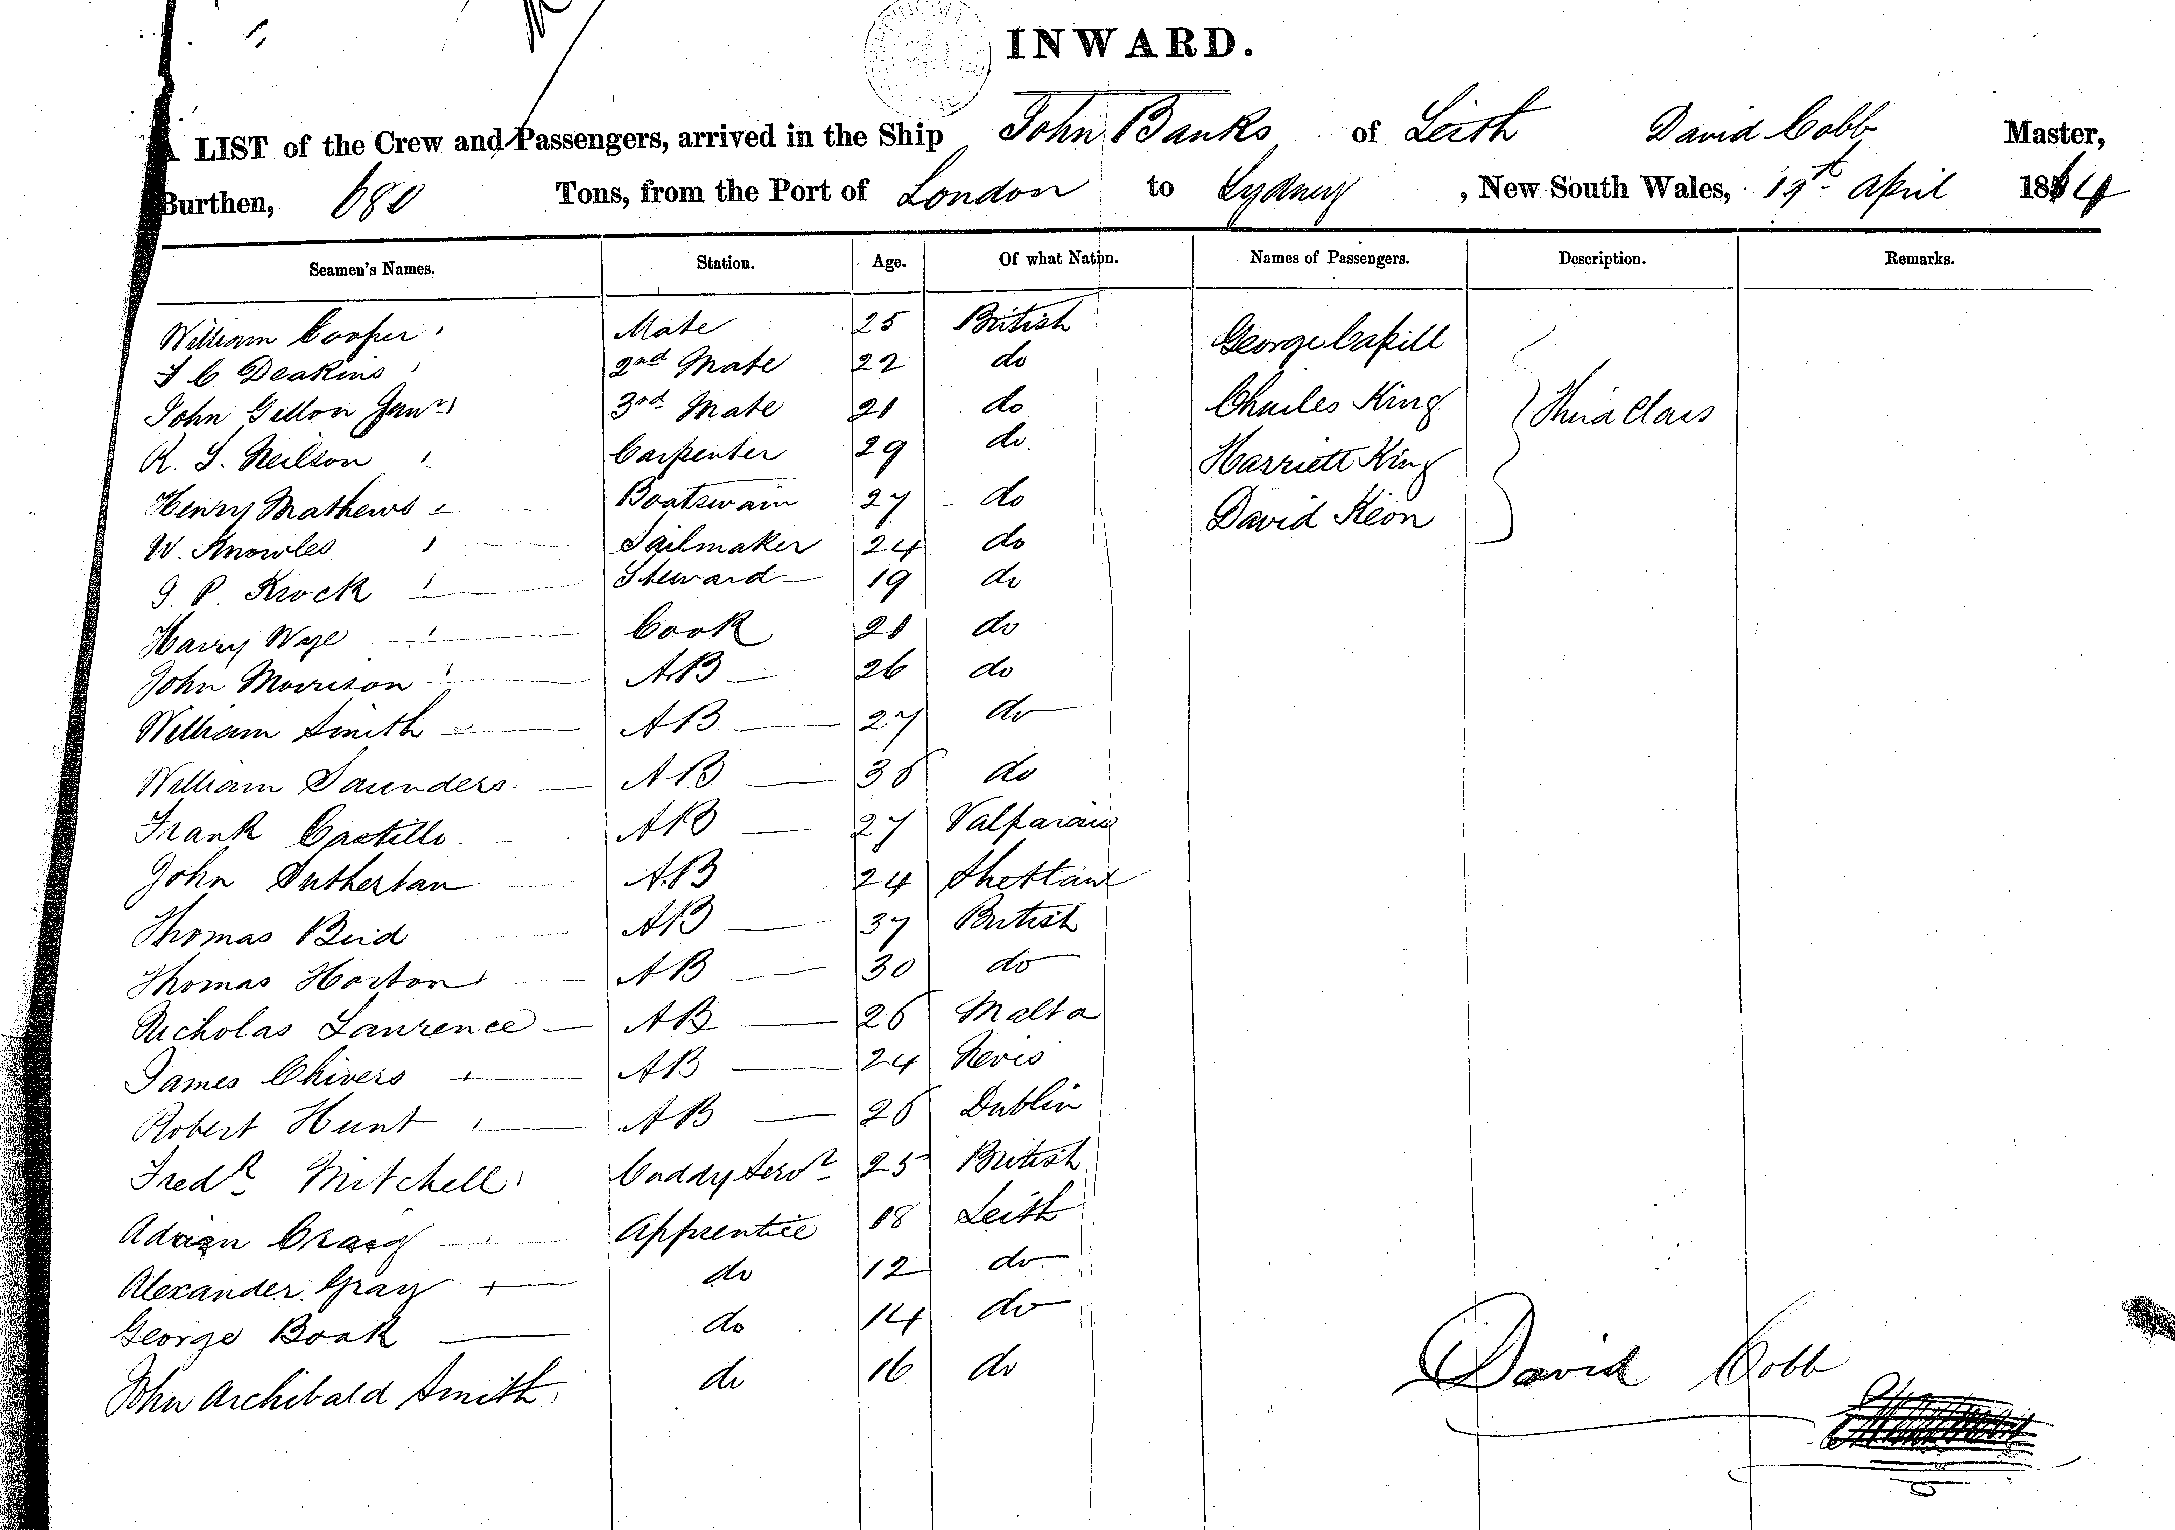 INWARD.
A LIST of the Crew and Passengers, arrived in the Ship John Banks of Leith David Cobb Master,
Burthen, 680 Tons, from the Port of London to Sydney, New South Wales, 19th April 1864
Seamen's Names. Station. Age. Of what Nation. Names of Passengers. Description. Remarks.
William Cooper Mate 25 British George Cahill
J C Deakins 2nd Mate 22 do
John Gellon Junr 3rd Mate 21 do Charles King Third Class
R. S. Neilson Carpenter 29 do Harriett King
Henry Mathews Boatswain 27 do David Keon
W. Knowles Sailmaker 24 do
J. P. Krock Steward 19 do
Harry Wye Cook 21 do
John Morrison AB 26 do
William Smith AB 27 do
William Saunders AB 36 do
Frank Castillo AB 27 Valparaiso
John Sutherlan AB 24 Shetland
Thomas Reid AB 37 British
Thomas Horton AB 30 do
Nicholas Laurence AB 26 Malta
James Chivers AB 24 Nevis
Robert Hunt AB 26 Dublin
Fredk Mitchell Cuddy Servt 25 British
Craig Apprentice 18 Leith
Alexander Gray do 12 do
George Boak do 14 do
John Archibald Smith do 16 do
David Cobb